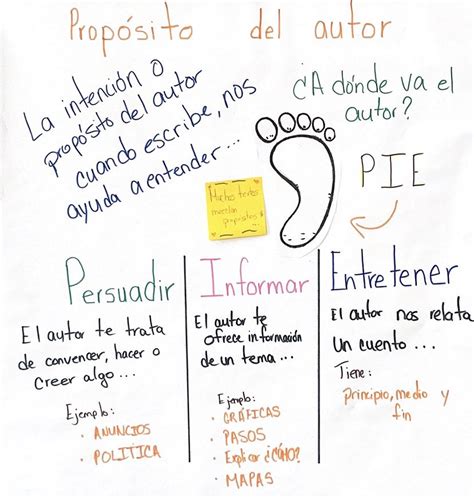 Propósito del autor
La intención o
propósito del autor
cuando escribe, nos
ayuda a entender...
¿A dónde va el
autor?
PIE
Muchos textos
mezclan
propósitos
Persuadir
El autor te trata
de convencer, hacer o
creer algo...
Ejemplo:
· ANUNCIOS
· POLITICA
Informar
El autor te
ofrece información
de un tema...
Ejemplo:
· GRÁFICAS
· PASOS
· Explicar ¿CÓMO?
· MAPAS
Entretener
El autor nos relata
un cuento...
Tiene:
principio, medio y
fin